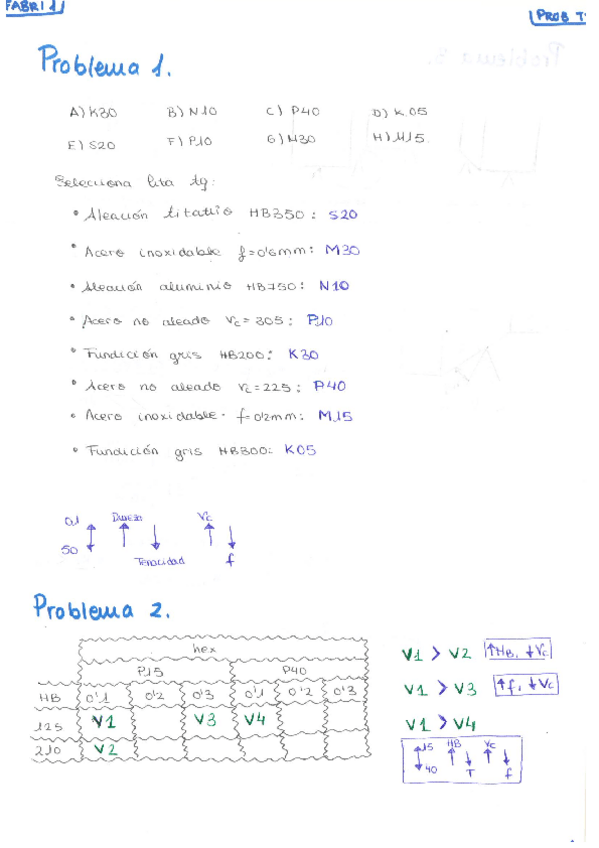 FABRI 1
PROB T
Problema 1.
A) K30 B) N10 C) P40 D) K05
E) S20 F) P10 G) M30 H) M15
Selecciona hta tq:
• Aleación titanio HB350: S20
• Acero inoxidable f=0'6mm: M30
• Aleación aluminio HB750: N10
• Acero no aleado Vc=305: P10
• Fundición gris HB200: K30
• Acero no aleado Vc=225: P40
• Acero inoxidable. f=0'2mm: M15
• Fundición gris HB300: K05
01 Dureza Vc
50 Tenacidad f
Problema 2.
hex
P15 P40
HB 0'1 0'2 0'3 0'1 0'2 0'3
125 V1 V3 V4
210 V2
V1 > V2 ↑HB, ↓Vc
V1 > V3 ↑f, ↓Vc
V1 > V4
15 HB Vc
40 T f